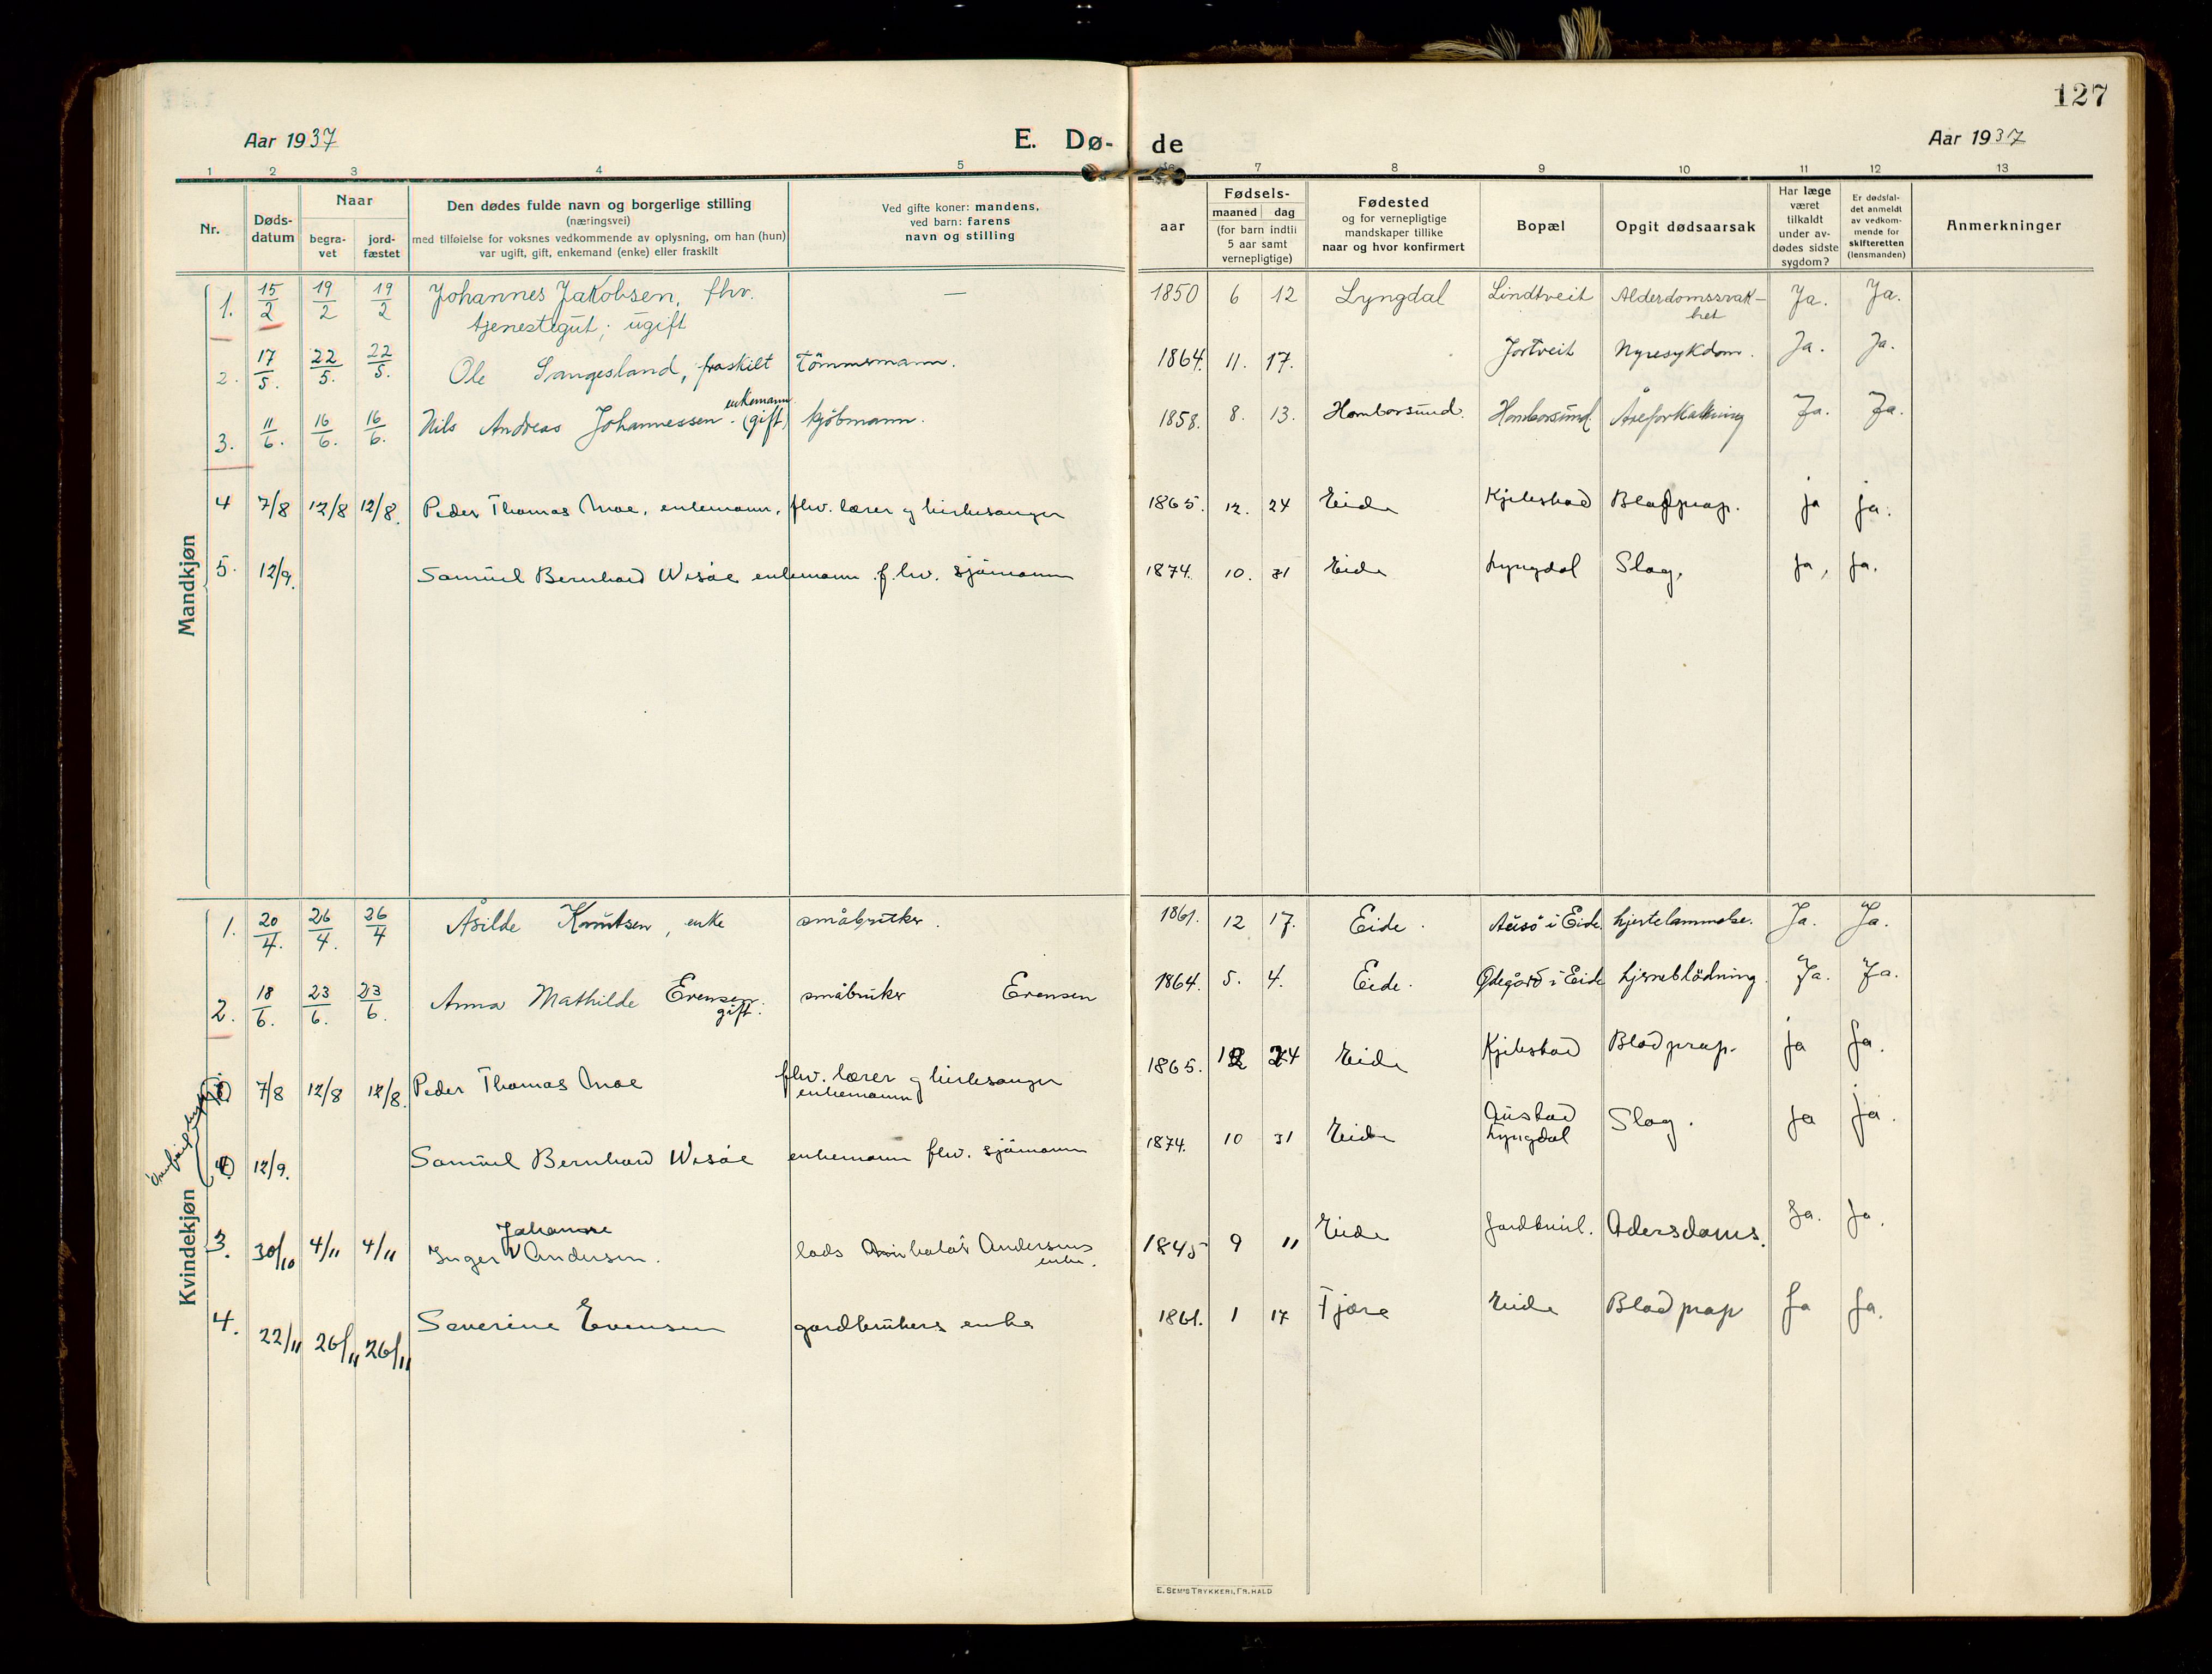 127
Aar 1937
E. Dø-
de
Aar 1937
1 2 3 4 5 7 8 9 10 11 12 13
Nr.
Døds-
datum
Naar
begra-
vet
jord-
fæstet
Den dødes fulde navn og borgerlige stilling
(næringsvei)
med tilføielse for voksnes vedkommende av oplysning, om han (hun)
var ugift, gift, enkemand (enke) eller fraskilt
Ved gifte koner: mandens,
ved barn: farens
navn og stilling
aar
Fødsels-
maaned dag
(for barn indtil
5 aar samt
vernepligtige)
Fødested
og for vernepligtige
mandskaper tillike
naar og hvor konfirmert
Bopæl
Opgit dødsaarsak
Har læge
været
tilkaldt
under av-
dødes sidste
sygdom?
Er dødsfal-
det anmeldt
av vedkom-
mende for
skifteretten
(lensmanden)
Anmerkninger
Mandkjøn
1. 15/2 19/2 19/2 Johannes Jakobsen, fhv. — 1850 6 12 Lyngdal Lindtveit Alderdomssvak- Ja. Ja.
tjenestegut; ugift het
2. 17/5. 22/5. 22/5. Ole Langesland, fraskilt tömmermann. 1864. 11. 17. Jortveit Nyresykdom. Ja. Ja.
enkemann
3. 11/6. 16/6. 16/6. Nils Andreas Johannessen. (gift) kjöbmann. 1858. 8. 13. Homborsund. Homborsund. Åreforkalkning Ja. Ja.
4 7/8 12/8 12/8. Peder Thomas Moe, enkemann, fhv. lærer og kirkesanger 1865. 12. 24 Eide Kjelestad Blodprop. ja ja.
5. 12/9. Samuel Bernhard Wisöe enkemann f.hv. sjömann 1874. 10. 31 Eide Lyngdal Slag. ja, ja.
Kvindekjøn
1. 20/4. 26/4. 26/4 Åsilde Knutsen, enke småbruker. 1861. 12 17. Eide. i Eide. hjertelammelse. Ja. Ja.
2. 18/6. 23/6. 23/6. Anna Mathilde Evensen. småbruker Evensen 1864. 5. 4. Eide. Ødegård i Eide hjerneblödning. Ja. Ja.
gift.
7/8 12/8 12/8. Peder Thomas Moe fhv. lærer og kirkesanger 1865. 12 24 Eide Kjelestad Blodprop. ja ja.
enkemann
12/9. Samuel Bernhard Wisöe enkemann fhv. sjömann 1874. 10 31 Eide Austad Slag. ja ja.
Lyngdal
Johanne
3. 30/10 4/11 4/11 Inger V Andersen. lods Andersens 1845 9 11 Eide Adersdoms. Ja. Ja.
enke.
4. 22/11 26/11 26/11 Severine Evensen gardbrukers enke 1861. 1 17 Tjøre Eide Blodprop ja ja.
E. SEM'S TRYKKERI, FR. HALD